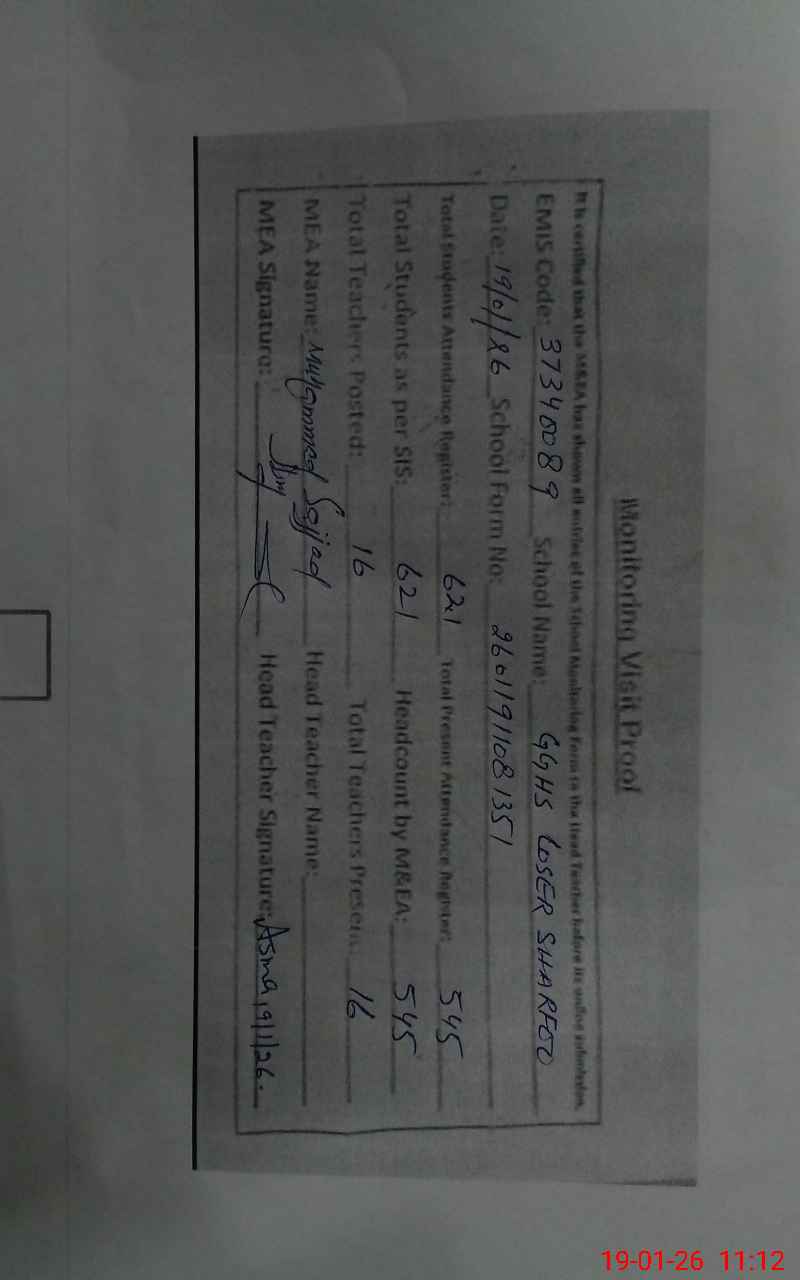 Monitoring Visit Proof
It is certified that the M&EA has shown all entries of the School Monitoring Form to the Head Teacher before its online submission.
EMIS Code: 37340089 School Name: GGHS LOSER SHARFOO
Date: 19/01/26 School Form No: 2601191108 1351
Total Students Attendance Register: 621 Total Present Attendance Register: 545
Total Students as per SIS: 621 Headcount by M&EA: 545
Total Teachers Posted: 16 Total Teachers Present: 16
MEA Name: Muhammed Sajjad Head Teacher Name:
MEA Signature: Head Teacher Signature: Asma 19/1/26.
19-01-26 11:12